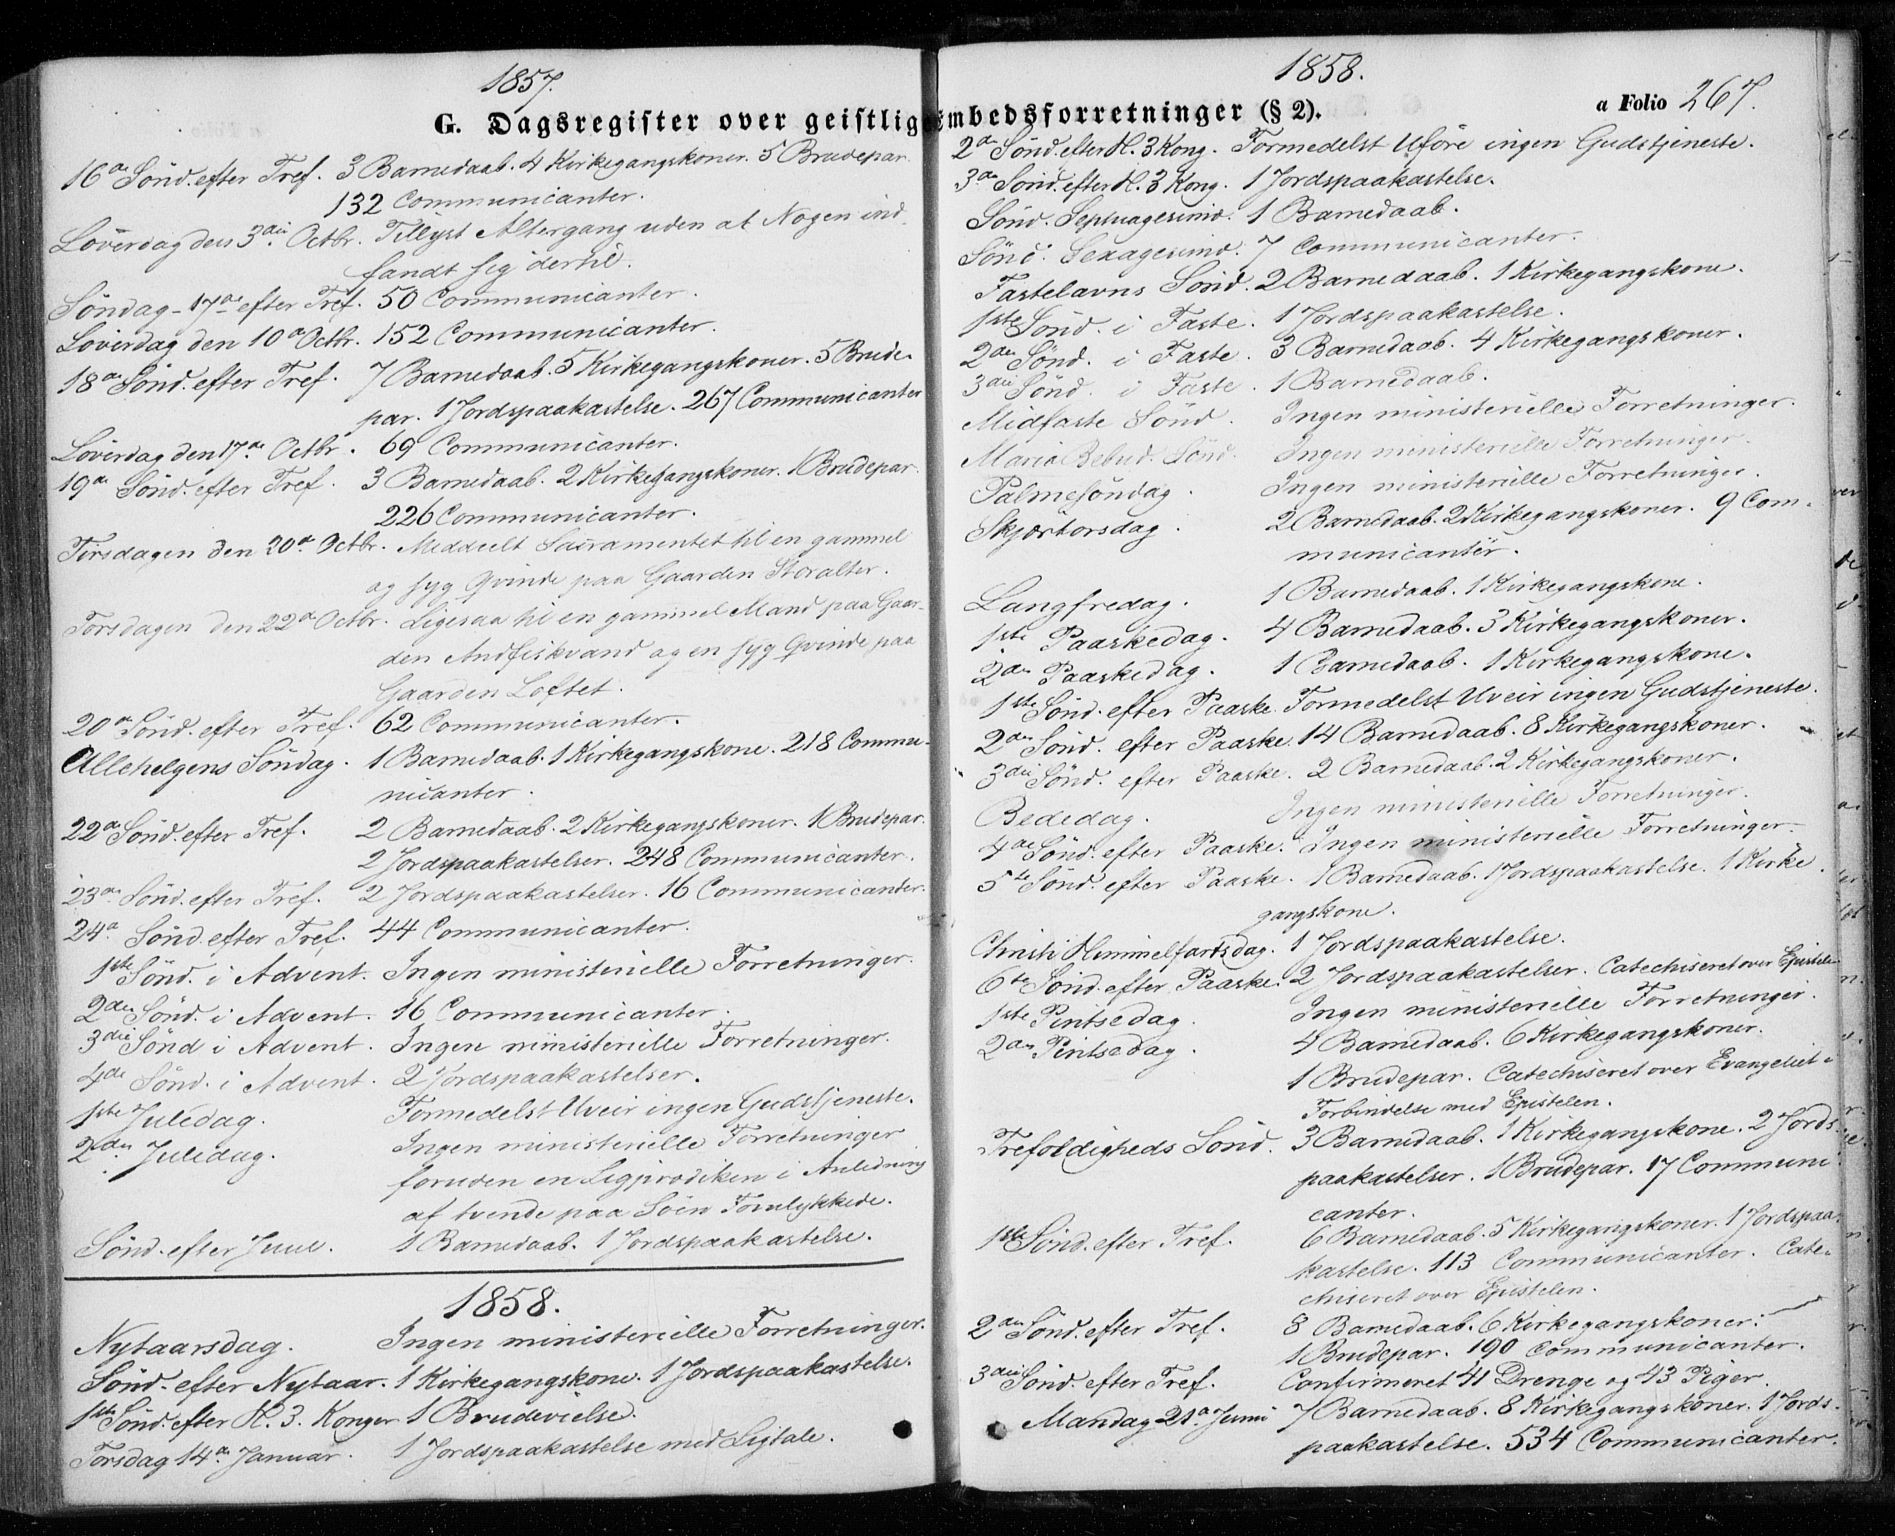 1857.
G. Dagsregister over geistlig
16de Sönd. efter Tref. 3 Barnedaab. 4 Kirkegangskoner. 5 Brudepar.
132 Communicanter.
Löverdag den 3die Octbr. Tillyst Altergang uden at Nogen ind-
fandt sig dertil.
Söndag 17de efter Tref. 50 Communicanter.
Löverdag den 10de Octbr. 152 Communicanter.
18de Sönd. efter Tref. 7 Barnedaab. 5 Kirkegangskoner. 5 Brude-
par. 1 Jordspaakastelse. 267 Communicanter
Löverdag den 17de Octbr. 69 Communicanter.
19de Sönd. efter Tref. 3 Barnedaab. 2 Kirkegangskoner. 1 Brudepar.
226 Communicanter.
Tirsdagen den 20de Octbr. Meddeelt Sacramentet til en gammel
og syg Qvinde paa Gaarden Storalter.
Torsdagen den 22de Octbr. Ligesaa til en gammel Mand paa Gaar-
den Andfiskvand og en syg Qvinde paa
Gaarden Loftet.
20de Sönd. efter Tref. 62 Communicanter.
Allehelgens Söndag. 1 Barnedaab. 1 Kirkegangskone. 218 Commu-
nicanter.
22de Sönd. efter Tref. 2 Barnedaab. 2 Kirkegangskoner. 1 Brudepar.
2 Jordspaakastelser. 248 Communicanter.
23de Sönd. efter Tref. 2 Jordspaakastelser. 16 Communicanter.
24de Sönd. efter Tref. 44 Communicanter.
1ste Sönd. i Advent. Ingen ministerielle Forretninger.
2den Sönd. i Advent. 16 Communicanter.
3die Sönd i Advent. Ingen ministerielle Forretninger.
4de Sönd. i Advent. 2 Jordspaakastelser.
1ste Juledag. Formedelst Uveir ingen Gudstjeneste.
2den Juledag. Ingen ministerielle Forretninger
foruden en Ligprædiken i Anledning
af tvende paa Söen Forulykkede.
Sönd. efter Juul. 1 Barnedaab. 1 Jordspaakastelse.
1858.
Nytaarsdag. Ingen ministerielle Forretninger.
Sönd. efter Nytaar. 1 Kirkegangskone. 1 Jordspaakastelse.
1ste Sönd. efter H. 3. Konger 1 Brudevielse.
Torsdag 14de Januar. 1 Jordspaakastelse med Ligtale.
1858.
mbedsforretninger (§ 2).
a Folio 267.
2den Sönd. efter H. 3 Kong. Formedelst Uföre ingen Gudstjeneste.
3die Sönd. efter H. 3 Kong. 1 Jordspaakastelse.
Sönd. Septuagesima. 1 Barnedaab.
Sönd. Sexagesima. 7 Communicanter.
Fastelavns Sönd. 2 Barnedaab. 1 Kirkegangskone.
1ste Sönd. i Faste. 1 Jordspaakastelse.
2den Sönd. i Faste. 3 Barnedaab. 4 Kirkegangskoner.
3die Sönd. i Faste. 1 Barnedaab.
Midfaste Sönd. Ingen ministerielle Forretninger.
Maria Bebud. Sönd. Ingen ministerielle Forretninger.
Palmesöndag. Ingen ministerielle Forretninger.
Skjærtorsdag. 2 Barnedaab. 2 Kirkegangskoner. 9 Com-
municanter.
Langfredag. 1 Barnedaab. 1 Kirkegangskone.
1ste Paaskedag. 4 Barnedaab. 3 Kirkegangskoner.
2den Paaskedag. 1 Barnedaab. 1 Kirkegangskone.
1ste Sönd. efter Paaske. Formedelst Uveir ingen Gudstjeneste.
2den Sönd. efter Paaske. 14 Barnedaab. 8 Kirkegangskoner.
3die Sönd. efter Paaske. 2 Barnedaab. 2 Kirkegangskoner.
Bededag. Ingen ministerielle Forretninger.
4de Sönd. efter Paaske. Ingen ministerielle Forretninger.
5te Sönd. efter Paaske. 1 Barnedaab. 1 Jordspaakastelse. 1 Kirke-
gangskone.
Christi Himmelfartsdag. 1 Jordspaakastelse.
6te Sönd. efter Paaske. 2 Jordspaakastelser. Catechiseret over Epistelen
1ste Pintsedag. Ingen ministerielle Forretninger.
2den Pintsedag. 4 Barnedaab. 6 Kirkegangskoner.
1 Brudepar. Catechiseret over Evangeliet i
Forbindelse med Epistelen.
Trefoldigheds Sönd. 3 Barnedaab. 1 Kirkegangskone. 2 Jords-
paakastelser. 1 Brudepar. 17 Communi-
canter.
1ste Sönd. efter Tref. 6 Barnedaab. 5 Kirkegangskoner. 1 Jordspaa-
kastelse. 113 Communicanter. Cate-
chiseret over Epistelen.
2den Sönd. efter Tref. 8 Barnedaab. 6 Kirkegangskoner.
1 Brudepar. 190 Communicanter.
3die Sönd. efter Tref. Confirmeret 41 Drenge og 43 Piger.
Mandag 21de Juni 7 Barnedaab. 8 Kirkegangskoner. 1 Jords-
paakastelse. 534 Communicanter.